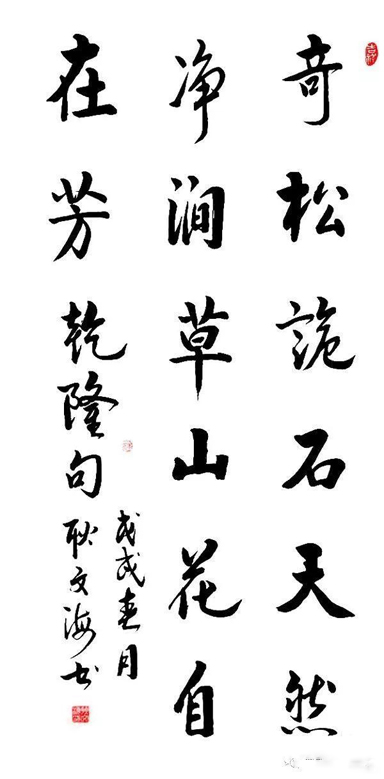 吉祥
奇松詭石天然
净澗草山花自
在芳
乾隆句
戊戌春月
耿文海书